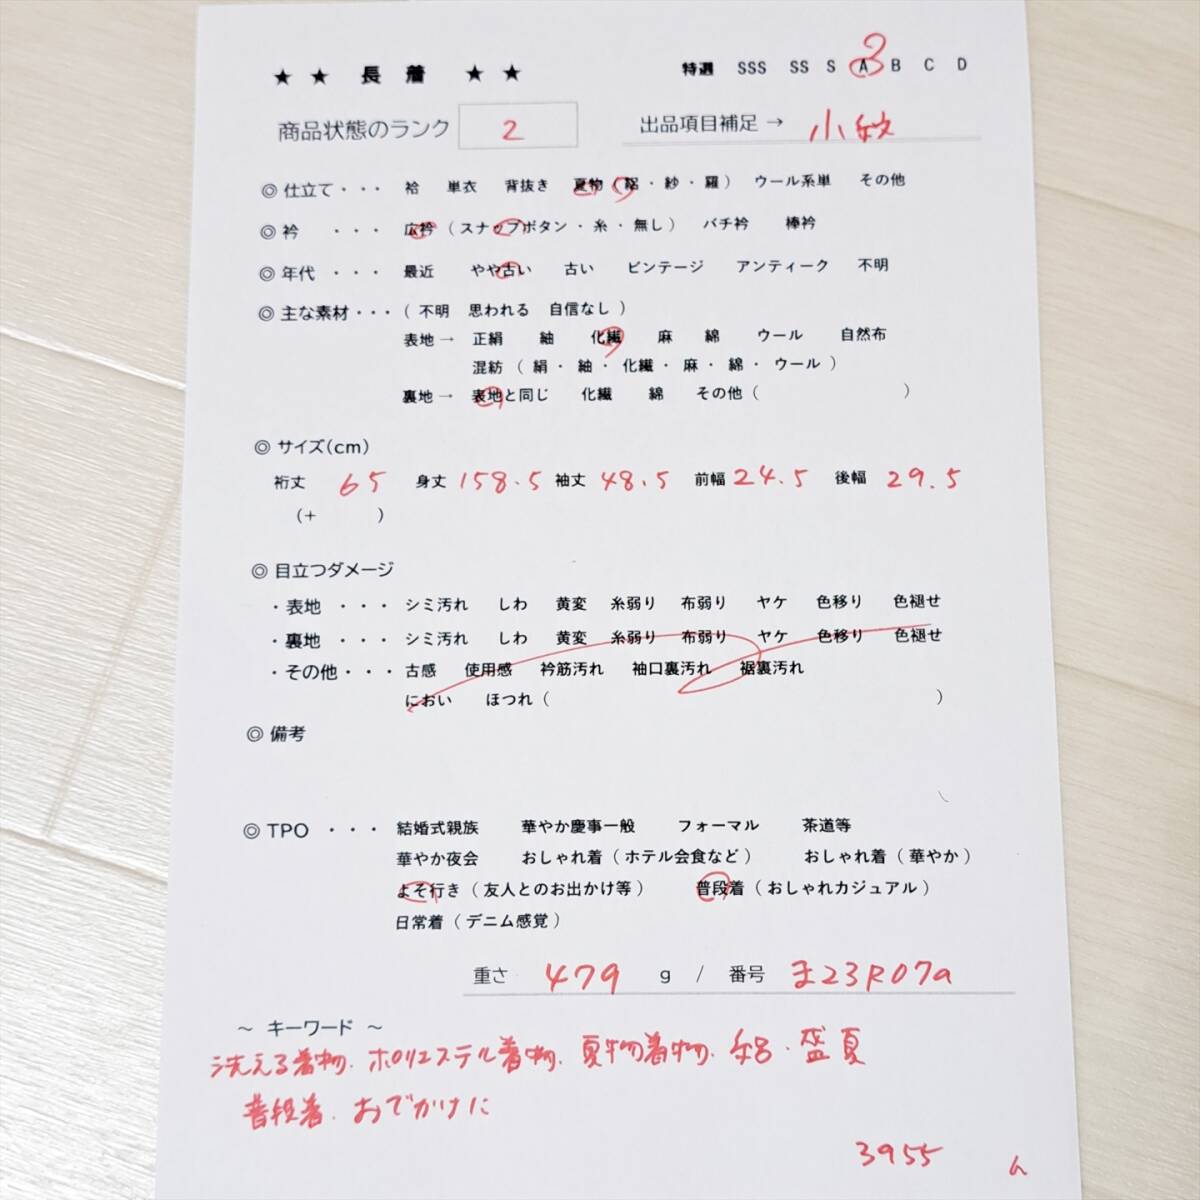 ★ ★ 長 着 ★ ★
特選 SSS SS S A B C D
商品状態のランク 2 出品項目補足 → 小紋
◎ 仕立て ・・・ 袷 単衣 背抜き 夏物 ( 絽 ・ 紗 ・ 羅 ) ウール系単 その他
◎ 衿 ・・・ 広衿 ( スナップボタン ・ 糸 ・ 無し ) バチ衿 棒衿
◎ 年代 ・・・ 最近 やや古い 古い ビンテージ アンティーク 不明
◎ 主な素材 ・・・ ( 不明 思われる 自信なし )
表地 → 正絹 紬 化繊 麻 綿 ウール 自然布
混紡 ( 絹 ・ 紬 ・ 化繊 ・ 麻 ・ 綿 ・ ウール )
裏地 → 表地と同じ 化繊 綿 その他 ( )
◎ サイズ(cm)
裄丈 65 身丈 158.5 袖丈 48.5 前幅 24.5 後幅 29.5
(+ )
◎ 目立つダメージ
・表地 ・・・ シミ汚れ しわ 黄変 糸弱り 布弱り ヤケ 色移り 色褪せ
・裏地 ・・・ シミ汚れ しわ 黄変 糸弱り 布弱り ヤケ 色移り 色褪せ
・その他・・・ 古感 使用感 衿筋汚れ 袖口裏汚れ 裾裏汚れ
におい ほつれ ( )
◎ 備考
◎ TPO ・・・ 結婚式親族 華やか慶事一般 フォーマル 茶道等
華やか夜会 おしゃれ着 ( ホテル会食など ) おしゃれ着 ( 華やか )
よそ行き ( 友人とのお出かけ等 ) 普段着 ( おしゃれカジュアル )
日常着 ( デニム感覚 )
重さ 479 g / 番号 ま23R07a
～ キーワード ～
洗える着物. ポリエステル着物. 夏物着物. 絽・盛夏
普段着. おでかけに
3955